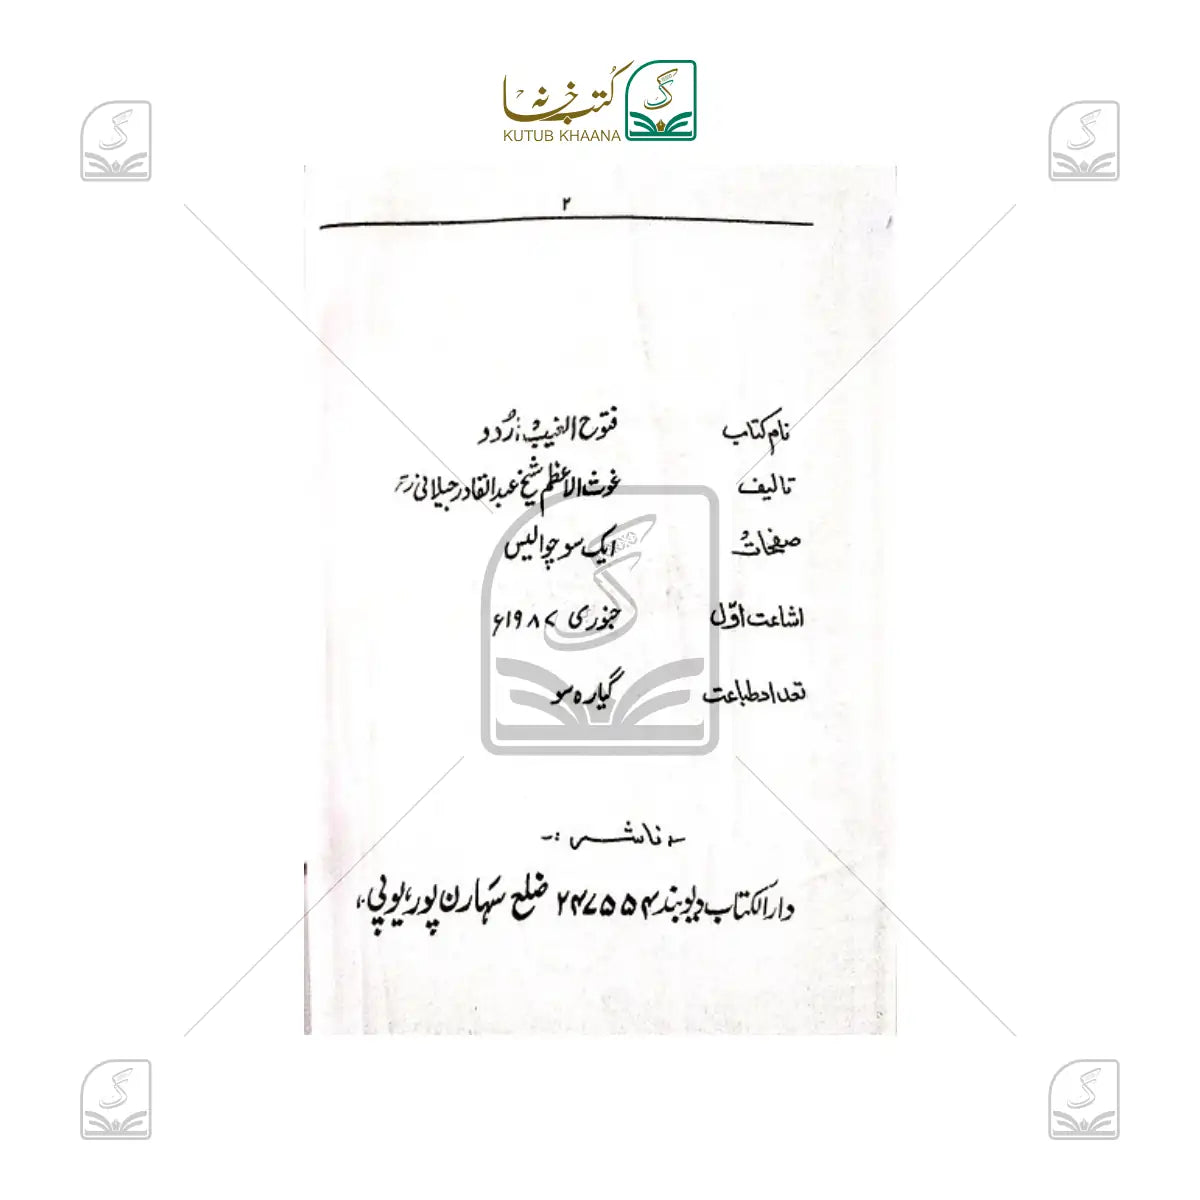 کتب خانہ
KUTUB KHAANA
۲
نام کتاب فتوح الغیب اُردو
تالیف غوث الاعظم شیخ عبدالقادر جیلانی رح
صفحات ایک سو چوالیس
اشاعت اوّل جنوری ۱۹۸۷ء
تعداد طباعت گیارہ سو
ناشر :-
دارالکتاب دیوبند ۲۴۷۵۵۴ ضلع سہارن پور، یوپی،